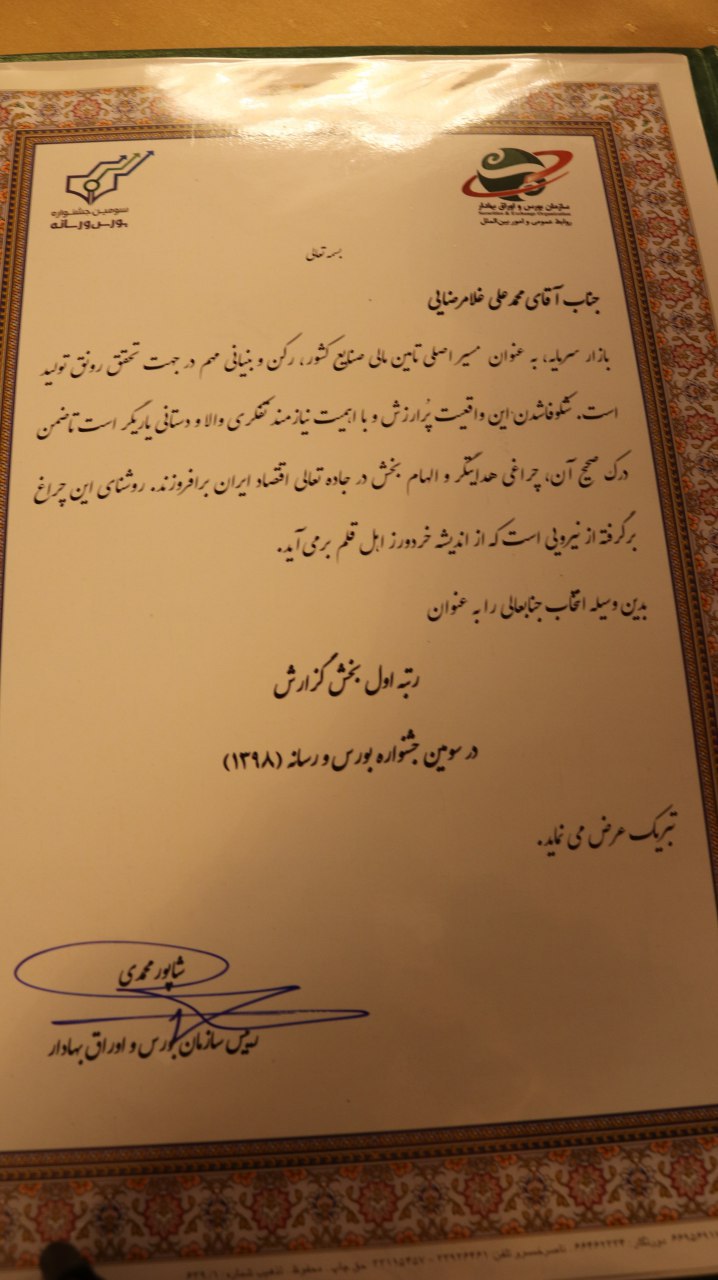 سومین جشنواره
بورس و رسانه
سازمان بورس و اوراق بهادار
Securities & Exchange Organization
روابط عمومی و امور بین‌الملل
بسمه تعالی
جناب آقای محمد علی غلامرضایی
بازار سرمایه، به عنوان مسیر اصلی تامین مالی صنایع کشور، رکن و بنیانی مهم در جهت تحقق رونق تولید
است. شکوفاشدن این واقعیت پُرارزش و با اهمیت نیازمند تفکری والا و دستانی یاریگر است تا ضمن
درک صحیح آن، چراغی هدایتگر و الهام بخش در جاده تعالی اقتصاد ایران برافروزند. روشنای این چراغ
برگرفته از نیرویی است که از اندیشه خردورز اهل قلم برمی‌آید.
بدین وسیله انتخاب جنابعالی را به عنوان
رتبه اول بخش گزارش
در سومین جشنواره بورس و رسانه (۱۳۹۸)
تبریک عرض می نماید.
شاپور محمدی
رییس سازمان بورس و اوراق بهادار